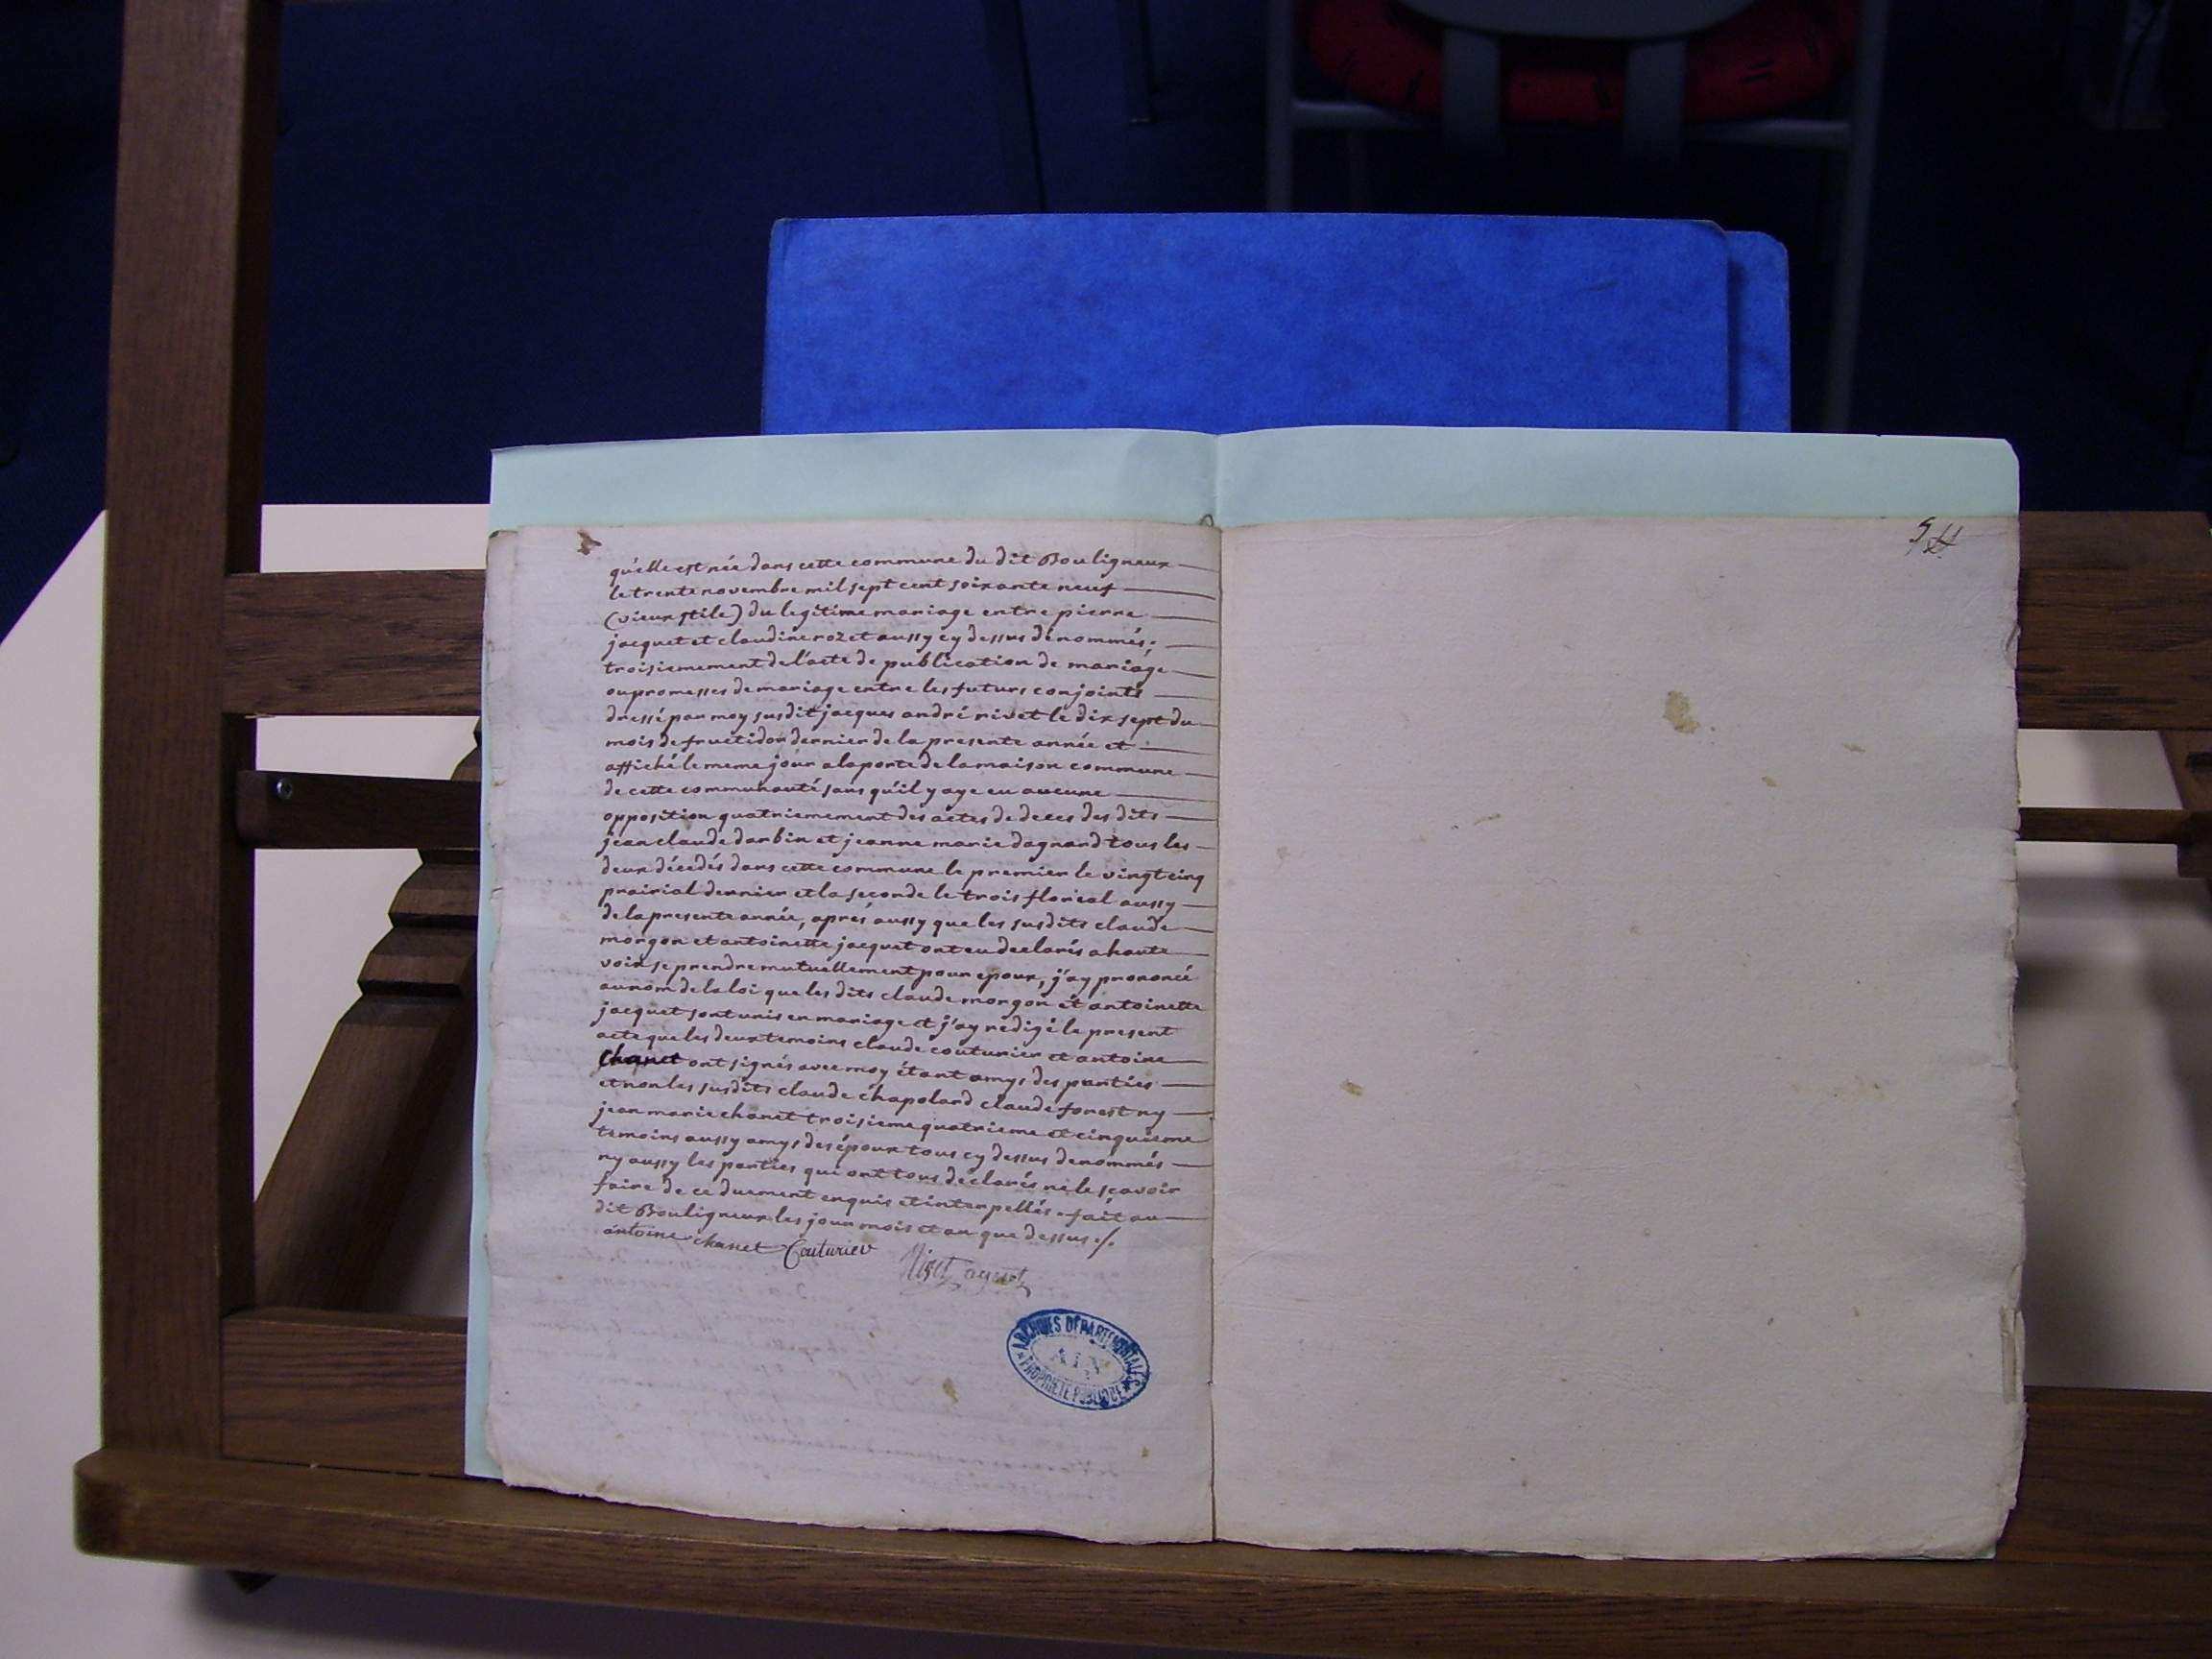 qu'elle est née dans cette commune du dit Bouligneux
le trente novembre mil sept cent soixante neuf
(vieux stile) du legitime mariage entre pierre
jacquet et claudine rozet aussy cy dessus dénommés;
troisiemement de l'acte de publication de mariage
ou promesses de mariage entre les futurs conjoints
dressé par moy susdit jacques andré rivet le dix sept du
mois de fructidor dernier de la presente année et
affiché le meme jour a la porte de la maison commune
de cette communauté sans qu'il y aye eu aucune
opposition quatriemement des actes de deces des dits
jean claude darbin et jeanne marie dagnard tous les
deux décedés dans cette commune le premier le vingt cinq
prairial dernier et la seconde le trois floreal aussy
de la presente année, aprés aussy que les susdits claude
morgon et antoinette jacquet ont eu declarés a haute
voix se prendre mutuellement pour epoux, j'ay prononcé
au nom de la loi que les dits claude morgon et antoinette
jacquet sont unis en mariage et j'ay redigé le present
acte que les deux temoins claude couturier et antoine
chanet ont signés avec moy étant amys des parties
et non les susdits claude chapolard claude forest ny
jean marie chanet troisieme quatrieme et cinquieme
temoins aussy amys des époux tous cy dessus denommés
ny aussy les parties qui ont tous déclarés ne le sçavoir
faire de ce duement enquis et interpellés. fait au
dit Bouligneux les jour mois et an que dessus ./.
antoine chanet Couturier
Rivet agent
ARCHIVES DÉPARTEMENTALES
AIN
PROPRIÉTÉ PUBLIQUE